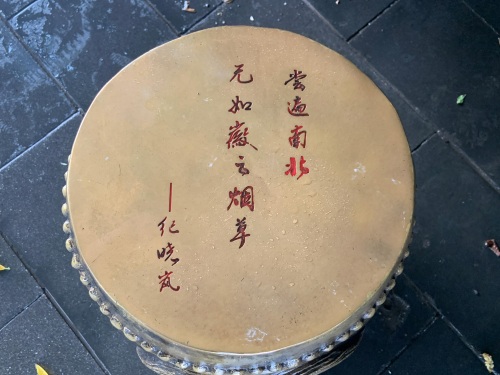 尝遍南北
无如徽之烟草
—纪晓岚